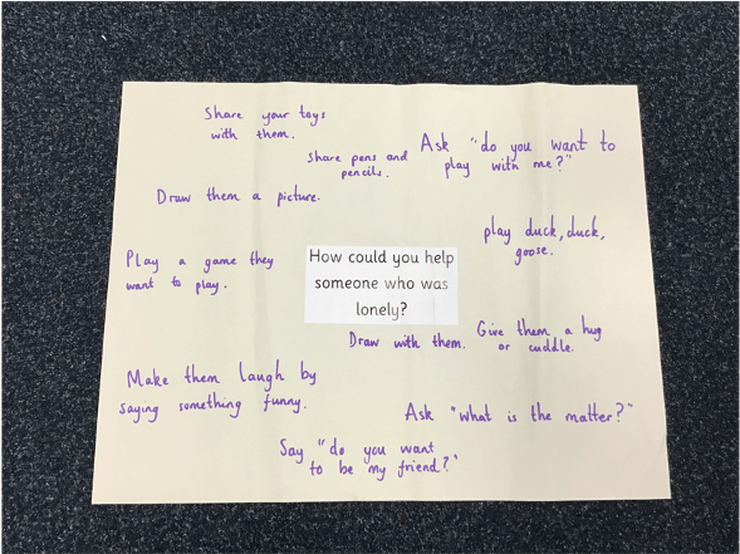 Share your toys
with them.
Share pens and
pencils.
Ask "do you want to
play with me?"
Draw them a picture.
play duck, duck,
goose.
Play a game they
want to play.
How could you help
someone who was
lonely?
Draw with them.
Give them a hug
or cuddle.
Make them laugh by
saying something funny.
Ask "what is the matter?"
Say "do you want
to be my friend?"